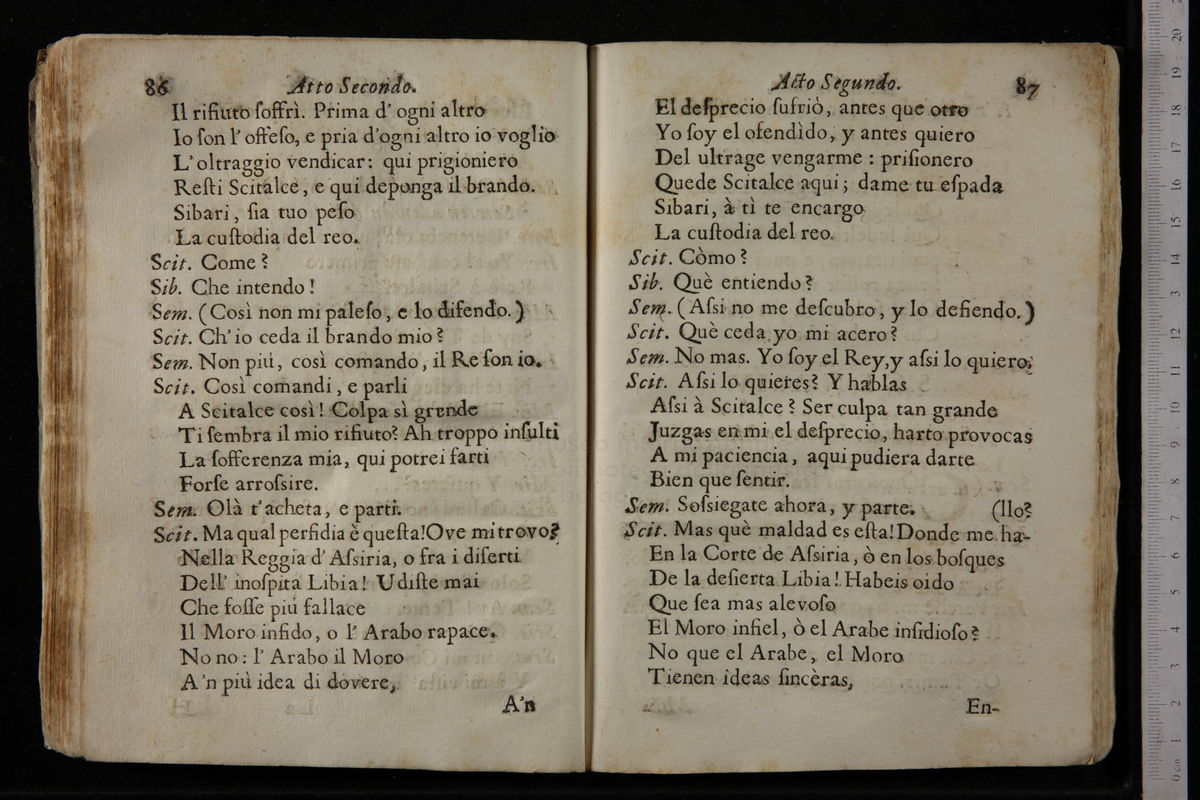 86
Atto Secondo.
Il rifiuto ſoffrì. Prima d' ogni altro
Io ſon l' offeſo, e pria d'ogni altro io voglio
L' oltraggio vendicar: qui prigioniero
Reſti Scitalce, e qui deponga il brando.
Sibari, ſia tuo peſo
La cuſtodia del reo.
Scit. Come?
Sib. Che intendo!
Sem. (Così non mi paleſo, e lo difendo.)
Scit. Ch' io ceda il brando mio?
Sem. Non più, così comando, il Re ſon io.
Scit. Così comandi, e parli
A Scitalce così! Colpa sì grende
Ti ſembra il mio rifiuto? Ah troppo inſulti
La ſofferenza mia, qui potrei farti
Forſe arroſsire.
Sem. Olà t' acheta, e parti.
Scit. Ma qual perfidia è queſta! Ove mi trovo?
Nella Reggia d' Aſsiria, o fra i diſerti
Dell' inoſpita Libia! Udiſte mai
Che foſſe più fallace
Il Moro infido, o l' Arabo rapace.
No no: l' Arabo il Moro
A'n più idea di dovere,
A'n
Acto Segundo.
87
El deſprecio ſufriò, antes que otro
Yo ſoy el ofendìdo, y antes quiero
Del ultrage vengarme: priſionero
Quede Scitalce aqui; dame tu eſpada
Sibari, à tì te encargo
La cuſtodia del reo.
Scit. Còmo?
Sib. Què entiendo?
Sem. (Aſsi no me deſcubro, y lo defiendo.)
Scit. Què ceda yo mi acero?
Sem. No mas. Yo ſoy el Rey, y aſsi lo quiero;
Scit. Aſsi lo quieres? Y hablas
Aſsi à Scitalce? Ser culpa tan grande
Juzgas en mi el deſprecio, harto provocas
A mi paciencia, aqui pudiera darte
Bien que ſentir.
Sem. Soſsiegate ahora, y parte. (llo?
Scit. Mas què maldad es eſta! Donde me ha-
En la Corte de Aſsiria, ò en los boſques
De la deſierta Libia! Habeis oido
Que ſea mas alevoſo
El Moro infiel, ò el Arabe inſidioſo?
No que el Arabe, el Moro
Tienen ideas ſincèras,
En-